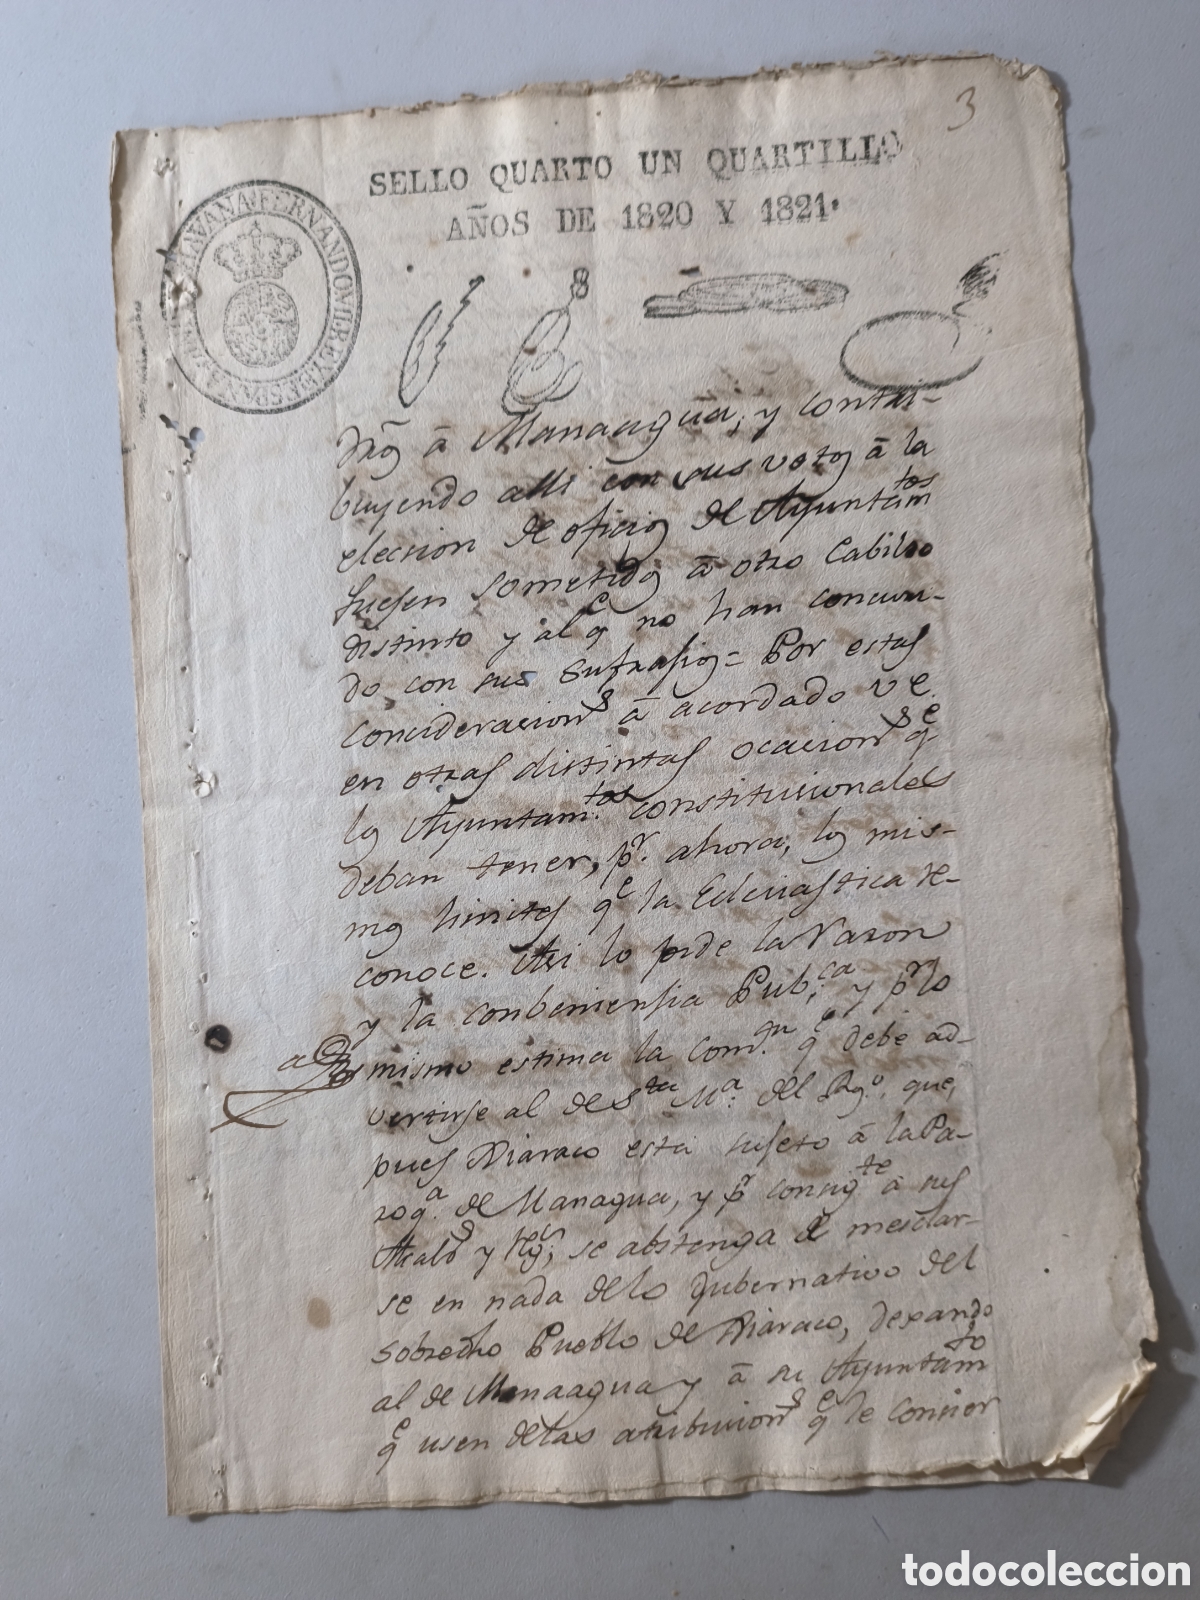 3
SELLO QUARTO UN QUARTILLO
AÑOS DE 1820 Y 1821.
HAVANA FERNANDO VII REY ESPAÑA
á Managua, y contri-
buyendo alli con sus votos á la
eleccion de oficios de Ayuntam.tos
fuesen sometidos á otro Cabildo
distinto y al q.e no han concurri-
do con sus sufragios = Por estas
concideracion.s á acordado V E.
en otras distintas ocacion.s q.e
los Ayuntam.tos constitucionales
deban tener, p.r ahora, los mis-
mos limites q.e la Eclesiastica re-
conoce. Asi lo pide la Razon
y la combeniensia Pub.ca y p.r lo
mismo estima la Com.on q.e debe ad-
vertirse al de S.ta M.a del Ros.o, que,
pues Biaraco está sujeto á la Pa-
roq.a de Managua, y p.r consig.te á sus
Alcald.s y Reg.s, se abstenga de mesclar-
se en nada de lo gubernativo del
sobredho Pueblo de Biaraco, dexando
al de Managua y á su Ayuntam.to
q.e usen de las atribucion.s q.e le confier